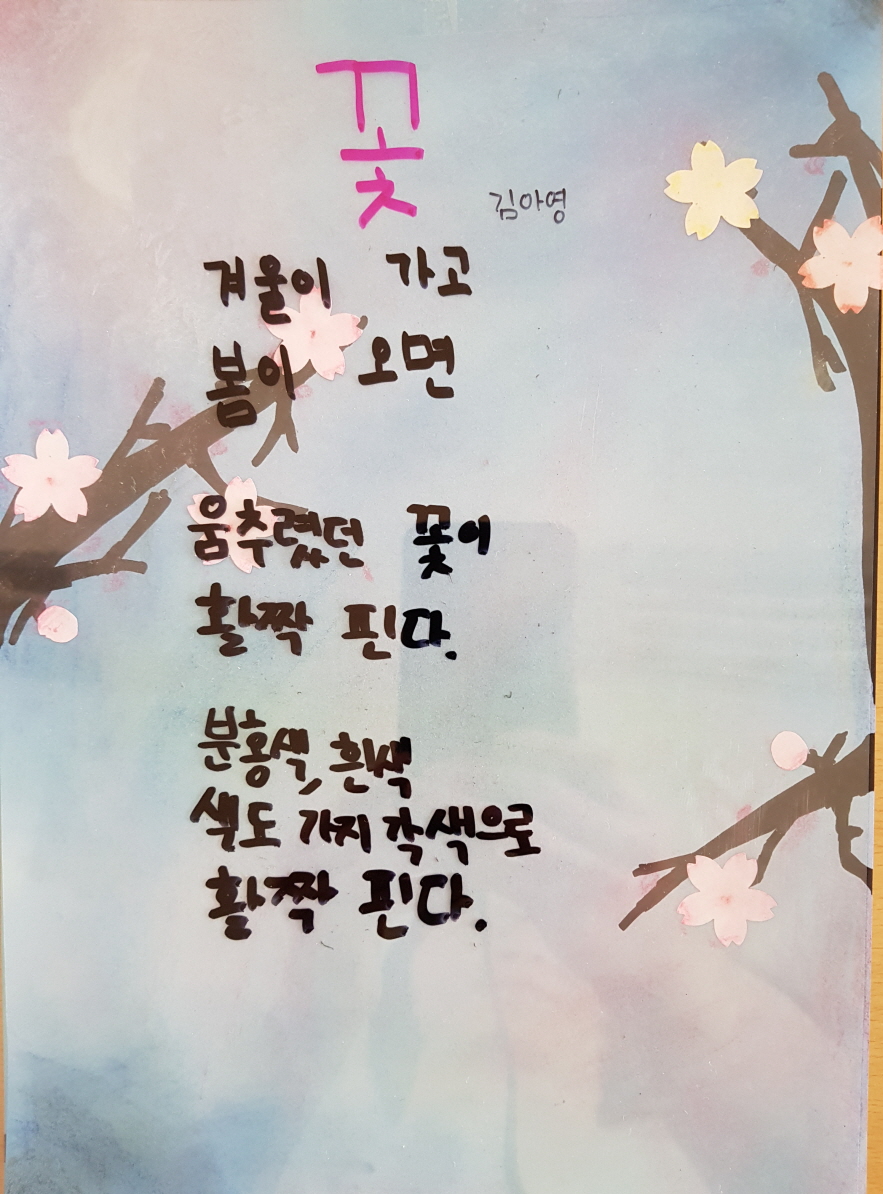 꽃
김아영
겨울이 가고
봄이 오면
움추렸던 꽃이
활짝 핀다.
분홍색, 흰색
색도 가지 각색으로
활짝 핀다.